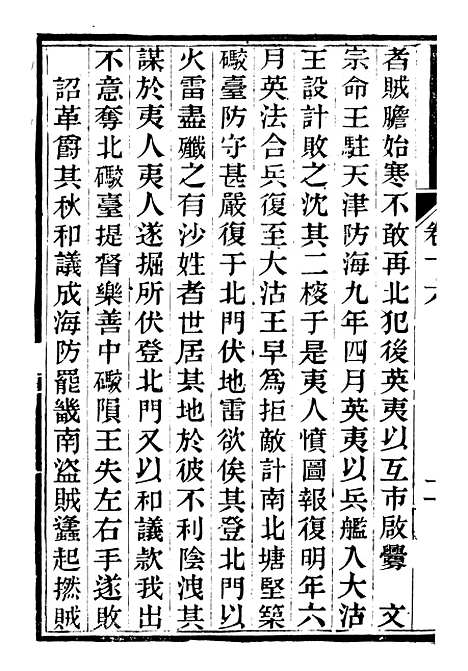 卷十六
二
者賊膽始寒不敢再北犯後英夷以互市啟釁　文
宗命王駐天津防海九年四月英夷以兵艦入大沽
王設計敗之沈其二梭于是夷人憤圖報復明年六
月英法合兵復至大沽王早為拒敵計南北塘堅築
礮臺防守甚嚴復于北門伏地雷欲俟其登北門以
火雷盡殲之有沙姓者世居其地於彼不利陰洩其
謀於夷人夷人遂掘所伏登北門又以和議款我出
不意奪北礮臺提督樂善中礮隕王失左右手遂敗
詔革爵其秋和議成海防罷畿南盜賊蠭起撚賊